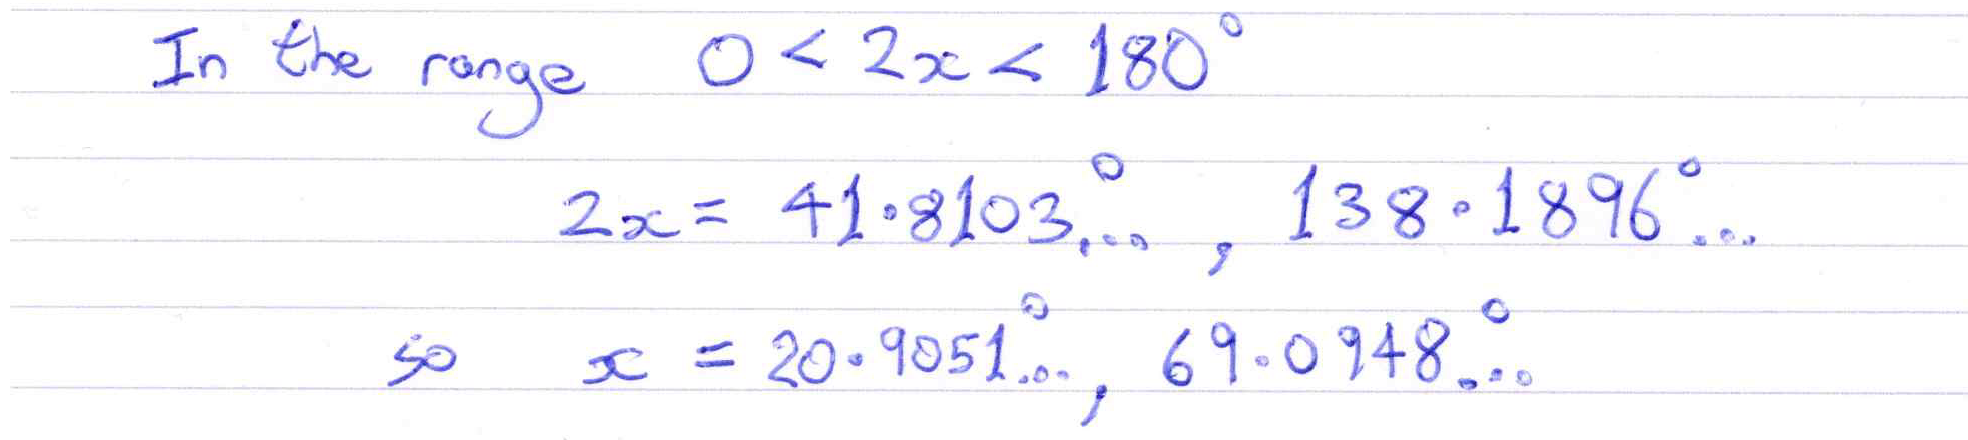 In the range 0 < 2x < 180°
2x = 41.8103...°, 138.1896°...
so x = 20.9051°..., 69.0948...°